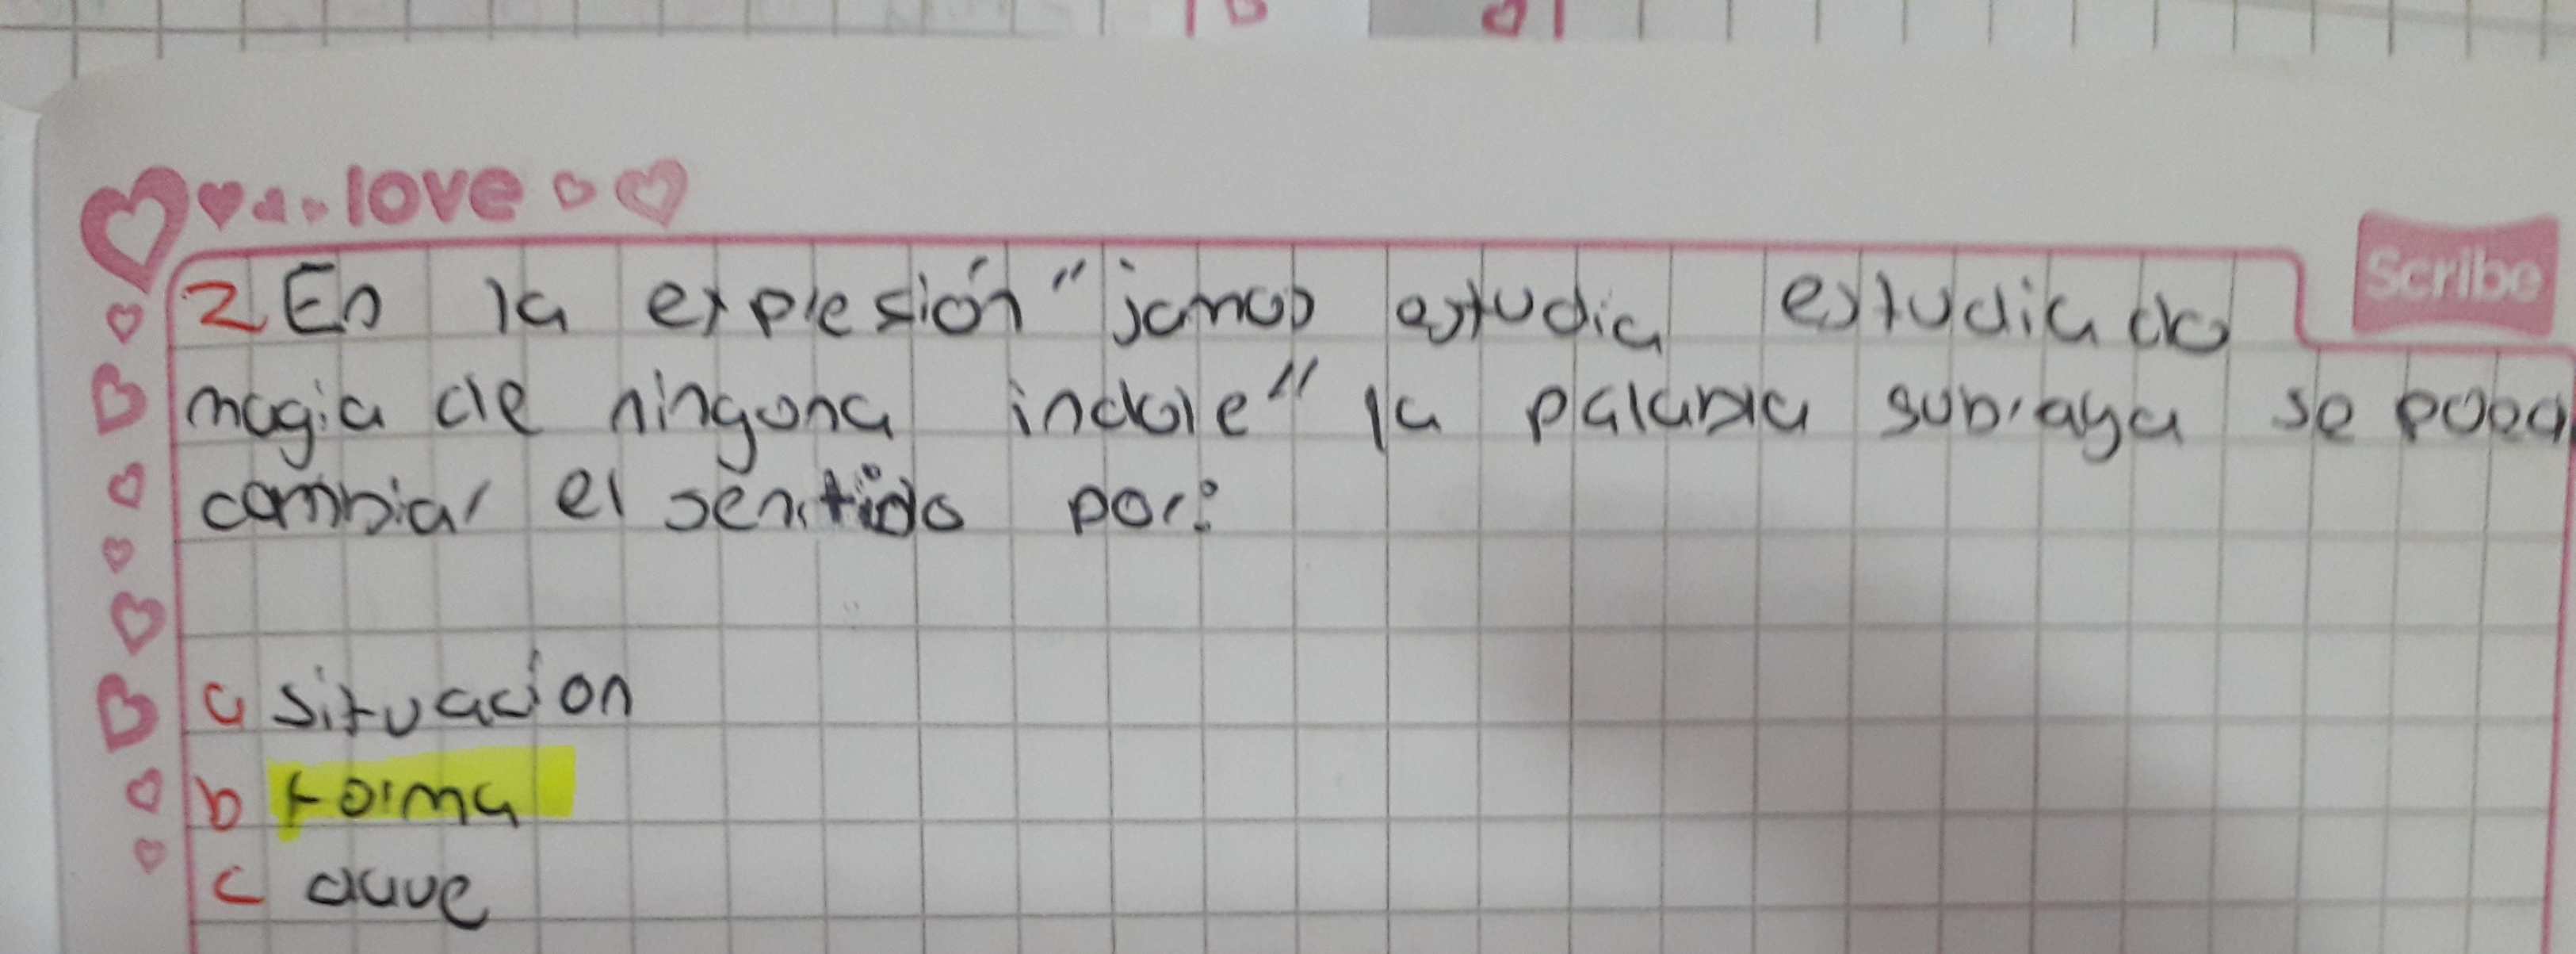 love
Scribe
2 En la expresión "jamas estudia estudiado
magia de ninguna indole" la palabra subraya se poda
cambiar el sentido por:
a situacion
b forma
c clave